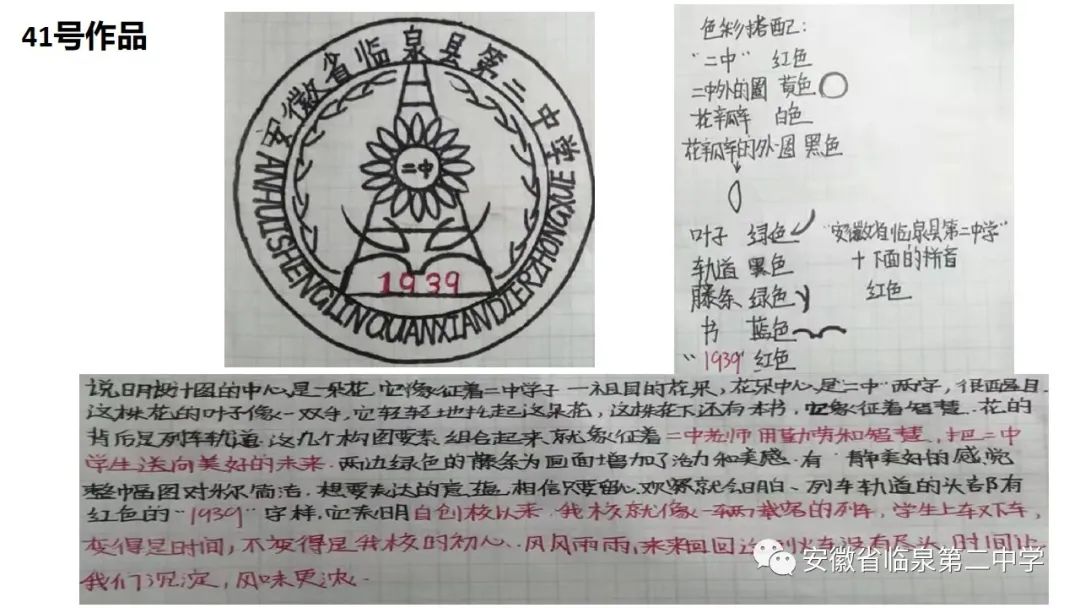 41号作品
安徽省临泉县第二中学
二中
1939
ANHUISHENGLINQUANXIANDIERZHONGXUE
色彩搭配:
“二中” 红色
二中外的圆 黄色
花瓣 白色
花瓣的外圆 黑色
叶子 绿色
轨道 黑色
藤条 绿色
书 蓝色
“1939” 红色
“安徽省临泉县第二中学”
+下面的拼音
红色
说明:设计图的中心是一朵花,它像征着二中学子——祖国的花朵,花朵中心是“二中”两字,很醒目.
这株花的叶子像一双手,它轻轻地托起这朵花,这株花下还有本书,它象征着智慧.花的
背后是列车轨道.这几个构图要素组合起来就象征着二中老师用勤劳和智慧,把二中
学生送向美好的未来.两边绿色的藤条为画面增加了活力和美感.有 静美好的感觉
整幅图对称简洁.想要表达的意蕴,相信只要留心观察就会明白、列车轨道的头部有
红色的“1939”字样,它表明自创校以来.我校就像一辆载客的列车,学生上车又下车,
变得是时间,不变得是我校的初心.风风雨雨,来来回回 火车没有尽头.时间让
我们沉淀,风味更浓.
安徽省临泉第二中学